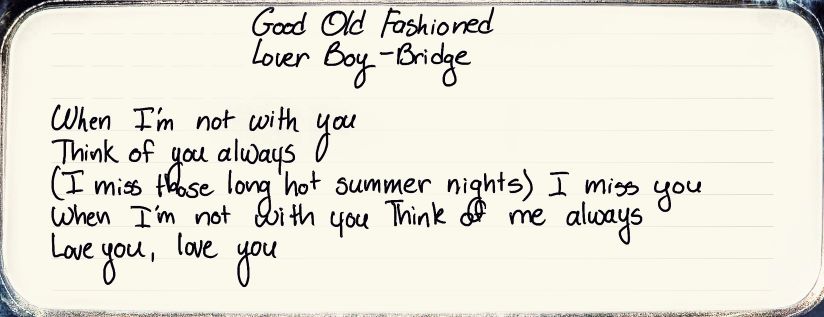 Good Old Fashioned
Lover Boy -Bridge
When I'm not with you
Think of you always
(I miss those long hot summer nights) I miss you
When I'm not with you Think of me always
Love you, love you